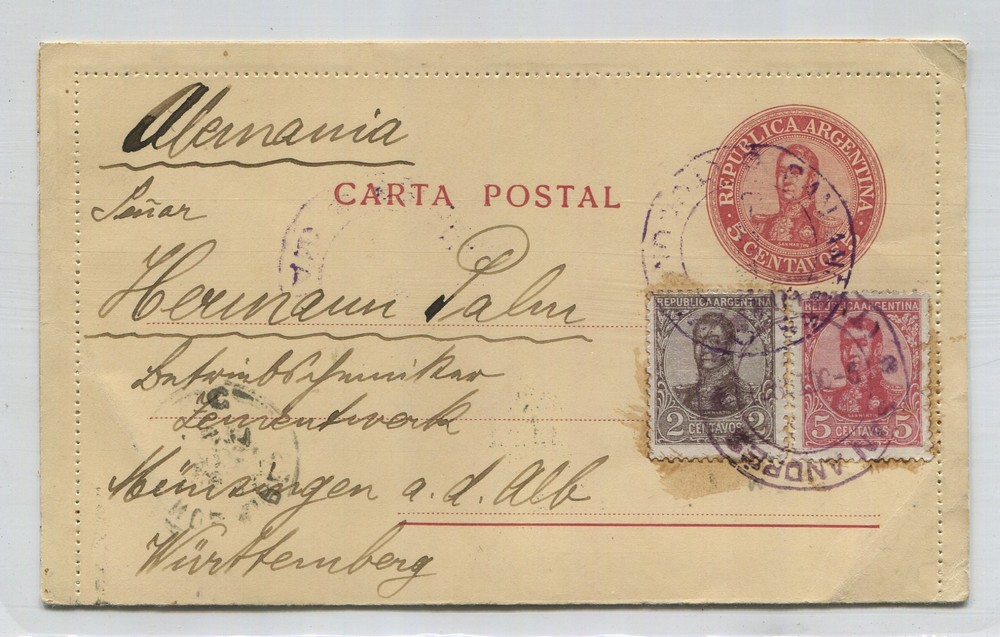 Alemania
REPUBLICA ARGENTINA
SAN MARTIN
5 CENTAVOS
CARTA POSTAL
Señor
Hermann Palm
Betriebschemiker
Zementwerk
Münsingen a. d. Alb
Württemberg
REPUBLICA ARGENTINA
SAN MARTIN
2 CENTAVOS 2
REPUBLICA ARGENTINA
SAN MARTIN
5 CENTAVOS 5
ANDRE